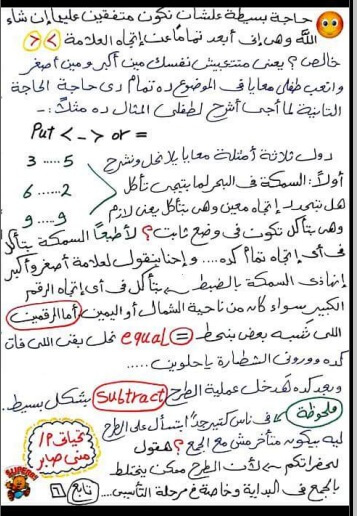 حاجة بسيطة علشان نكون متفقين عليها إن شاء
الله وهى إنى أبعد تماماً عن إتجاه العلامة > <
خالص ؟ يعنى متتعبيش نفسك مين أكبر ومين أصغر
واتعب طفلى معايا فى الموضوع ده تمام دى حاجة الحاجة
التانية لما أجى أشرح لطفلى المثال ده مثلاً :-
Put < _ > or =
دول ثلاثة أمثلة معايا يلا نحل ونشرح
3 ..... 5
أولاً: السمكة فى البحر لما بتيجى تأكل
هل بتحدد إتجاه معين وهى بتأكل يعنى لازم
6 ...... 2
وهى بتأكل تكون فى وضع ثابت ؟ لأ طبعاً السمكة بتأكل
9 .... 9
فى أى إتجاه تمام كده .... وإحنا بنقول لعلامة أصغر وأكبر
إنها زى السمكة بالضبط بتأكل فى أى إتجاه الرقم
الكبير سواء كان من ناحية الشمال أو اليمين أما الرقمين
اللى شبه بعض بنحط = equal نحل بقى اللى فات
كده وورونى الشطارة ياحلوين .....
وبعد كده ندخل عملية الطرح subtract بشكل بسيط.
ملحوظة فى ناس كتير جداً بتسأل على الطرح
ليه بيكون متأخر مش مع الجمع ؟ هقول
لحضراتكم لأن الطرح ممكن يتخلط
بالجمع فى البداية وخاصة فى مرحلة التأسيس ....
تحياتى P/
منى صابر
SUPER!!
تابع ٦